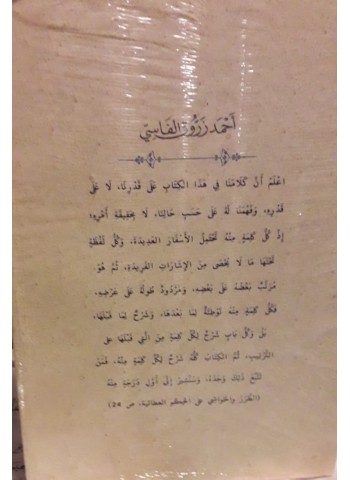 أَحْمَد زَرُّوق الفَاسِي
اِعْلَمْ أَنَّ كَلَامَنَا فِي هَذَا الكِتَابِ عَلَى قَدْرِنَا، لَا عَلَى
قَدْرِهِ، وَفَهْمَنَا لَهُ عَلَى حَسَبِ حَالِنَا، لَا بِحَقِيقَةِ أَمْرِهِ؛
إِذْ كُلُّ كَلِمَةٍ مِنْهُ تَحْتَمِلُ الأَسْفَارَ العَدِيدَةَ، وَكُلُّ لَفْظَةٍ
تَحْتَهَا مَا لَا يُحْصَى مِنَ الإِشَارَاتِ الفَرِيدَةِ، ثُمَّ هُوَ
مُرَتَّبٌ بَعْضُهُ عَلَى بَعْضِهِ، وَمَرْدُودٌ طُولُهُ عَلَى عَرْضِهِ،
فَكُلُّ كَلِمَةٍ مِنْهُ تَوْطِئَةٌ لِمَا بَعْدَهَا، وَشَرْحٌ لِمَا قَبْلَهَا،
بَلْ وَكُلُّ بَابٍ شَرْحٌ لِكُلِّ كَلِمَةٍ مِنَ الَّتِي قَبْلَهَا عَلَى
التَّرْتِيبِ، ثُمَّ الكِتَابُ كُلُّهُ شَرْحٌ لِكُلِّ كَلِمَةٍ مِنْهُ، فَمَنْ
تَتَبَّعَ ذَلِكَ وَجَدَهُ، وَسَنُشِيرُ إِلَى أَوَّلِ دَرَجَةٍ مِنْهُ
(الطُّرَرُ وَالحَوَاشِي عَلَى الحِكَمِ العَطَائِيَّةِ، ص 24)